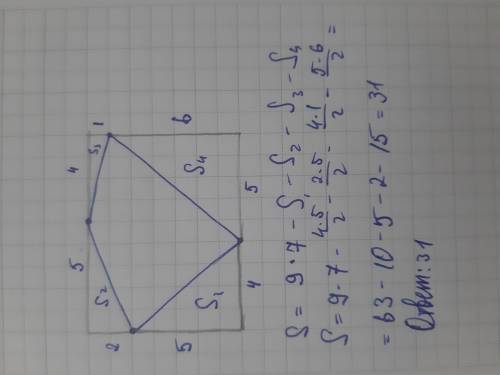 4 1
S₃
5
S₂
2
6
S₄
5
S₁
5 4
S = 9·7 - S₁ - S₂ - S₃ - S₄
S = 9·7 - 4·5/2 - 2·5/2 - 4·1/2 - 5·6/2 =
= 63 - 10 - 5 - 2 - 15 = 31
Ответ: 31